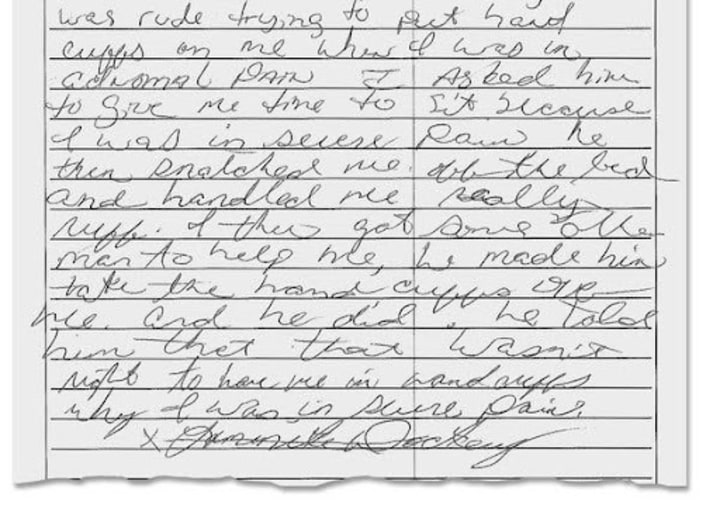 was rude trying to put hand
cuffs on me when I was in
adnomal PAIN I Asked him
to give me time to sit because
I was in severe Pain he
then snatched me. off the bed
and handled me really
ruff. I then got some other
man to help me, he made him
take the hand cuffs off
me. and he did. he told
him that that wasn't
right to have me in handcuffs
why I was in severe pain.
X